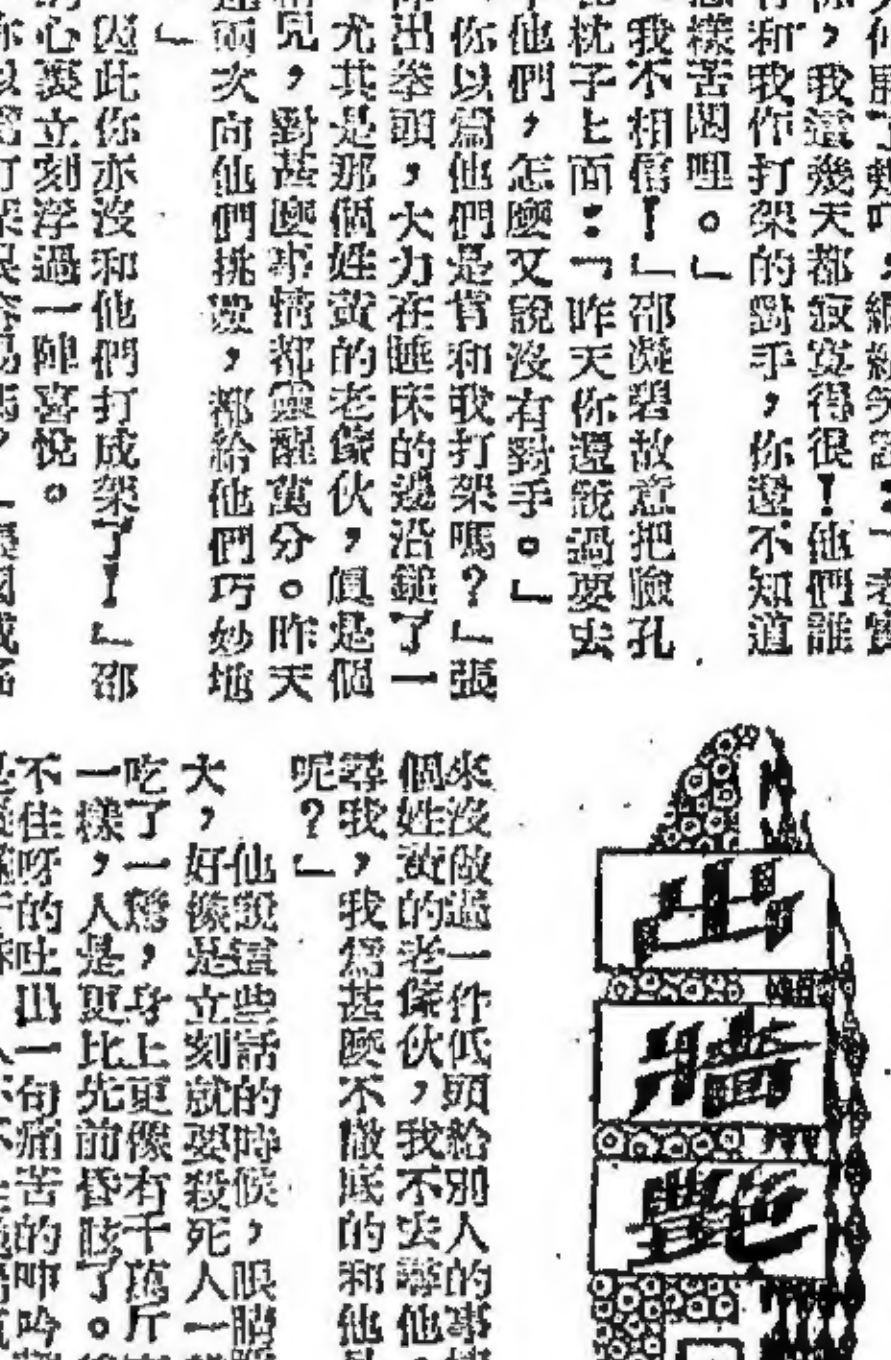 你，我這幾天都寂寞得很！他們誰
和我作打架的對手，你還不知道
樣苦悶哩。」
我不相信！」邵凝碧故意把臉孔
枕子上面：「昨天你還說過要去
他們，怎麼又說沒有對手。」
你以爲他們是肯和我打架嗎？」張
出拳頭，大力在睡床的邊沿鎚了一
尤其是那個姓黃的老傢伙，眞是個
兒，對甚麼事情都靈醒萬分。昨天
兩次向他們挑撥，都給他們巧妙地
」
因此你亦沒和他們打成架了！」邵
心裏立刻浮過一陣喜悅。
出牆艷
來沒做過一件低頭給別人的事
個姓黃的老傢伙，我不去尋他，
尋我，我爲甚麼不徹底的和他
呢？」
他說這些話的時候，眼睛
大，好像是立刻就要殺死人一
吃了一驚，身上更像有千萬斤
一樣，人是更比先前昏眩了。
不住呀的吐出一句痛苦的呻吟